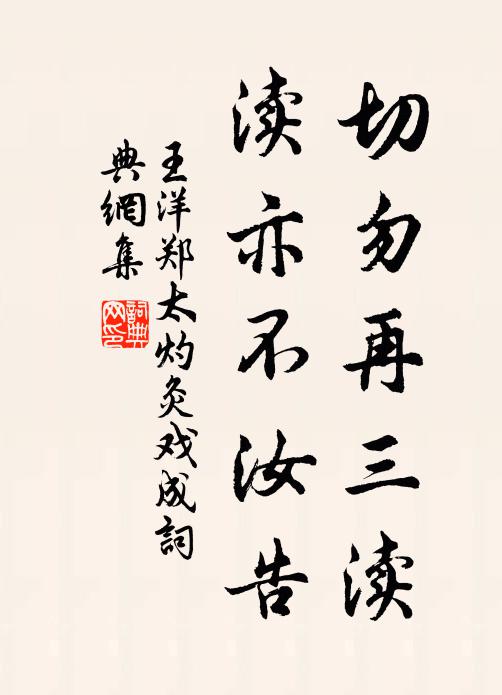 切勿再三渎
渎亦不汝告
王洋郑太灼灸戏成词
典网集
詞典网印